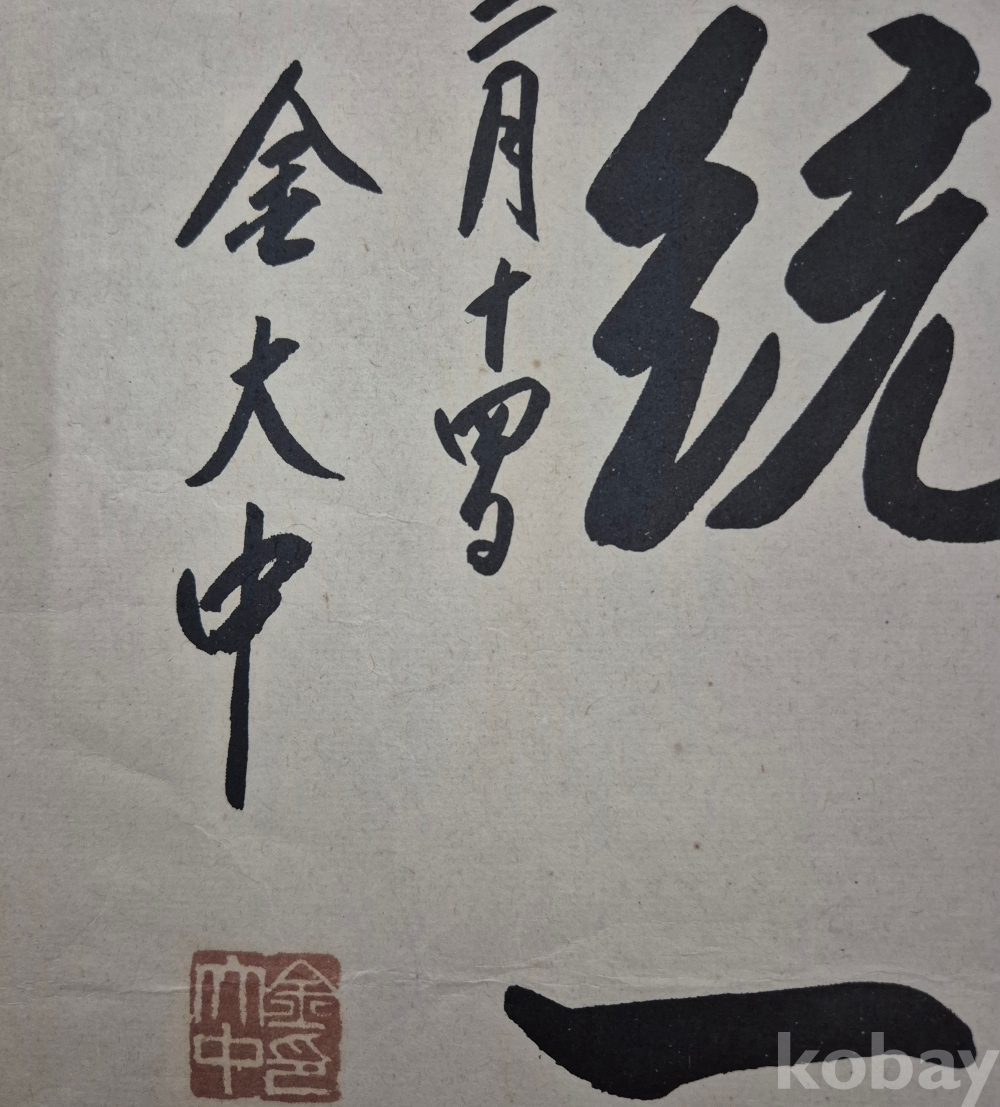 統一
二月十四日
金大中
金大中印
kobay